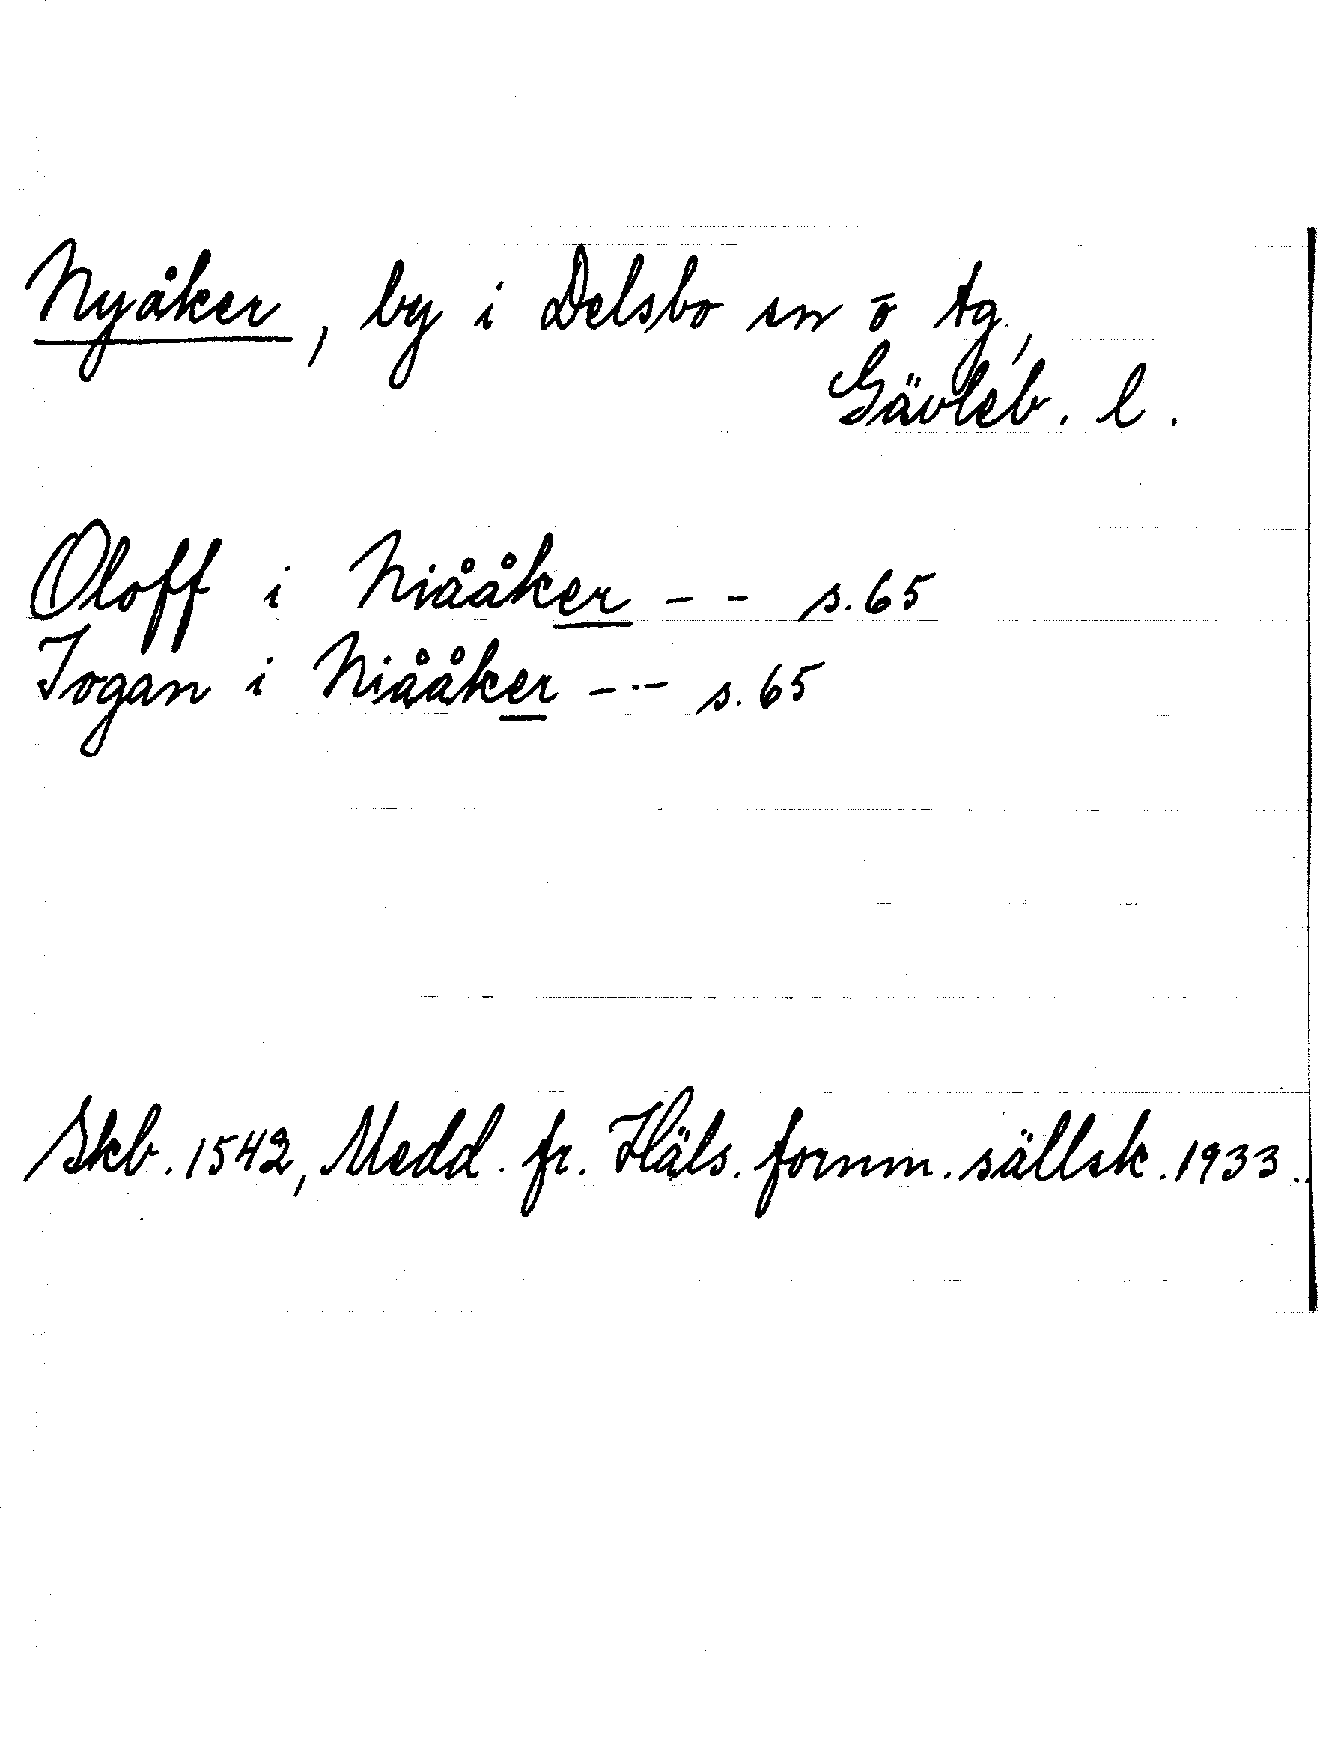 Nyåker, by i Delsbo sn o tg,
Gävleb. l.
Oloff i Niååker - - s. 65
Jogan i Niååker - - - s. 65
Skb. 1542, Medd. fr. Häls. fornm. sällsk. 1933.